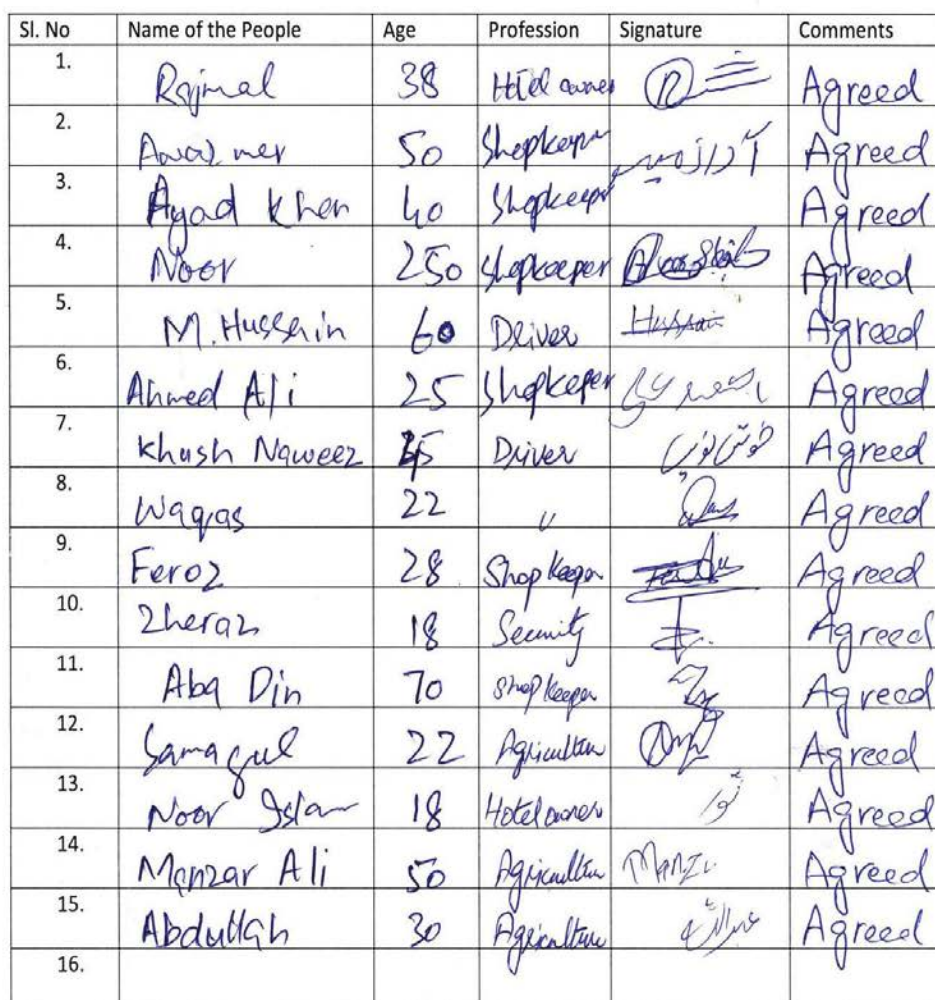 Sl. No Name of the People Age Profession Signature Comments
1. Rajmal 38 Hotel owner Agreed
2. mer 50 Shopkeeper Agreed
3. Ayad Khan 40 Shopkeeper Agreed
4. Noor 250 Shopkeeper Agreed
5. M. Hussain 60 Driver Hussain Agreed
6. Ahmed Ali 25 Shopkeper Agreed
7. Khush Naweez 35 Driver خوش نویس Agreed
8. Waqas 22 " Agreed
9. Feroz 28 Shop keeper Agreed
10. Zheraz 18 Security Agreed
11. Aba Din 70 Shop keeper Agreed
12. Samagul 22 Agriculture Agreed
13. Noor Islam 18 Hotel owner Agreed
14. Manzar Ali 50 Agriculture Manzr Agreed
15. Abdullah 30 Agriculture عبداللہ Agreed
16.